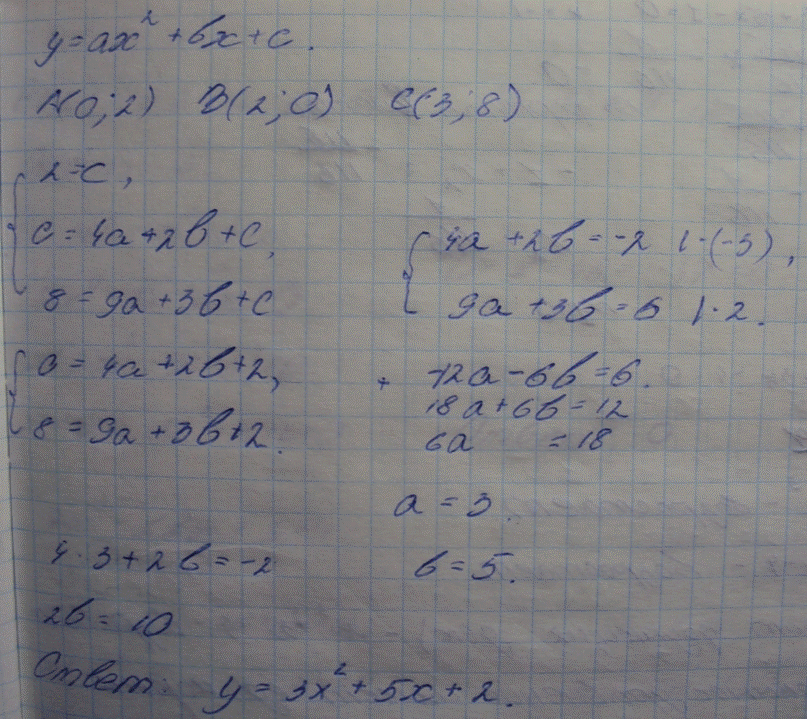 y = ax² + bx + c.
A(0; 2) B(2; 0) C(3; 8)
2 = c,
0 = 4a + 2b + c,
8 = 9a + 3b + c
0 = 4a + 2b + 2,
8 = 9a + 3b + 2.
4a + 2b = -2 | · (-3),
9a + 3b = 6 | · 2.
+ -12a - 6b = 6.
18a + 6b = 12
6a = 18
a = 3.
4 · 3 + 2b = -2
b = 5.
2b = 10
Ответ: y = 3x² + 5x + 2.